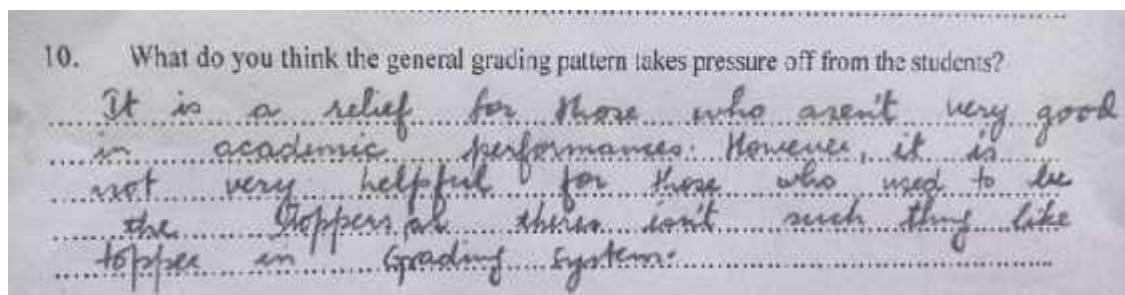 10. What do you think the general grading pattern takes pressure off from the students?
It is a relief for those who aren't very good
in academic performances. However, it is
not very helpful for those who used to be
the toppers as there isn't such thing like
topper in Grading System.